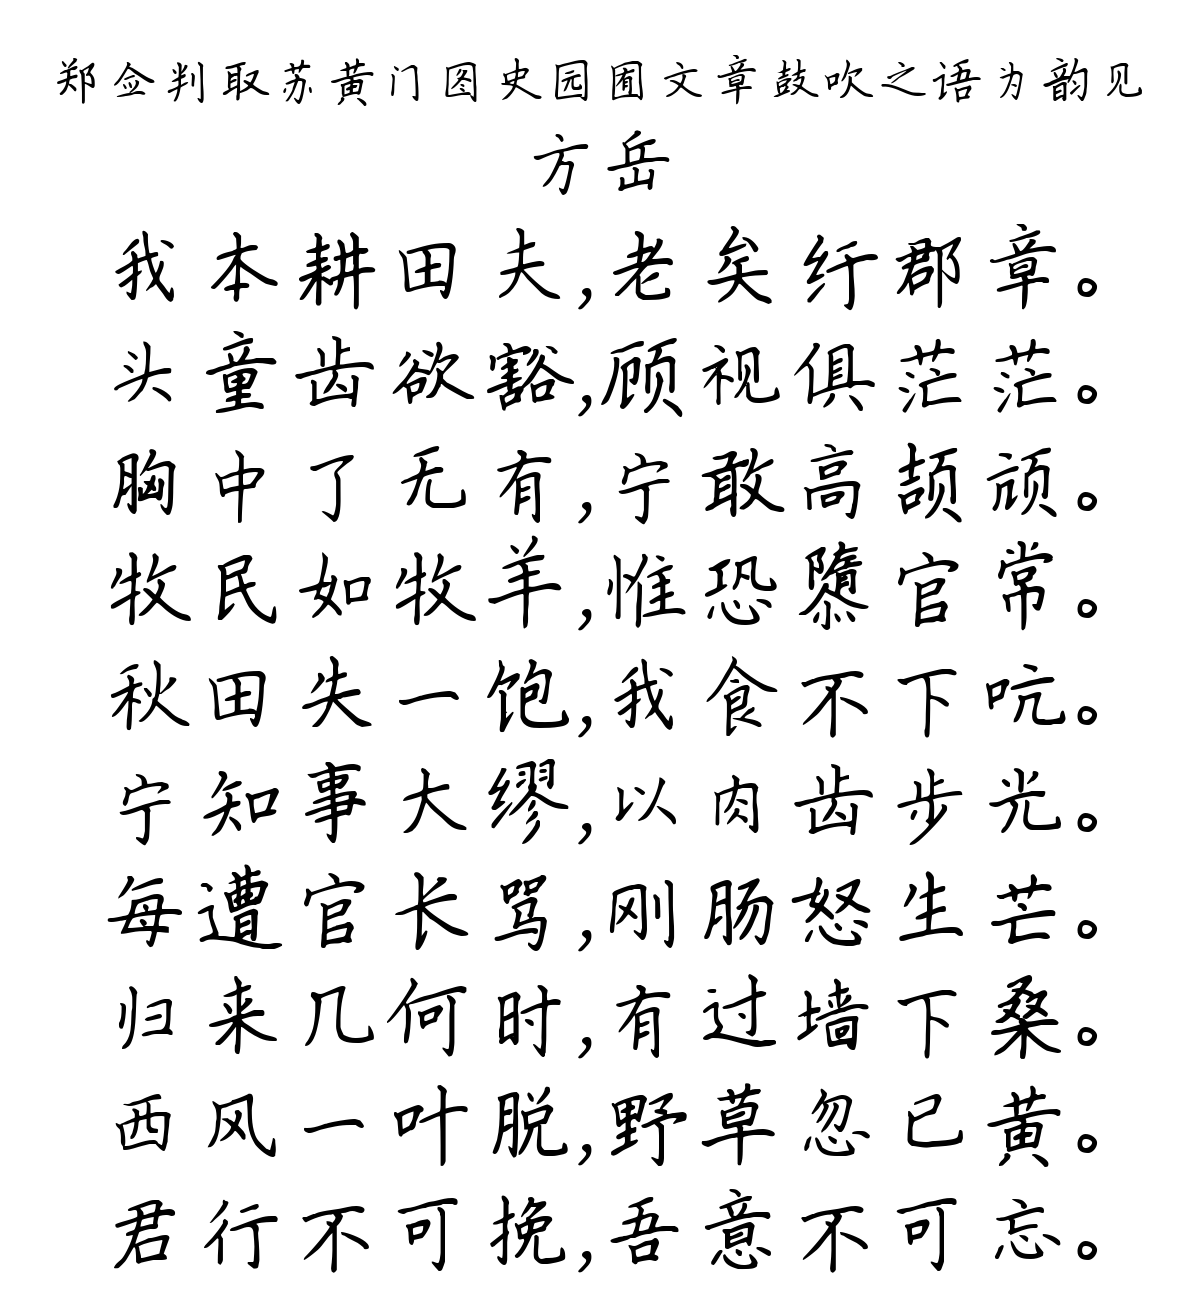 郑佥判取苏黄门图史园囿文章鼓吹之语为韵见
方岳
我本耕田夫,老矣纡郡章。
头童齿欲豁,顾视俱茫茫。
胸中了无有,宁敢高颉颃。
牧民如牧羊,惟恐隳官常。
秋田失一饱,我食不下吭。
宁知事大缪,以肉齿步光。
每遭官长骂,刚肠怒生芒。
归来几何时,有过墙下桑。
西风一叶脱,野草忽已黄。
君行不可挽,吾意不可忘。